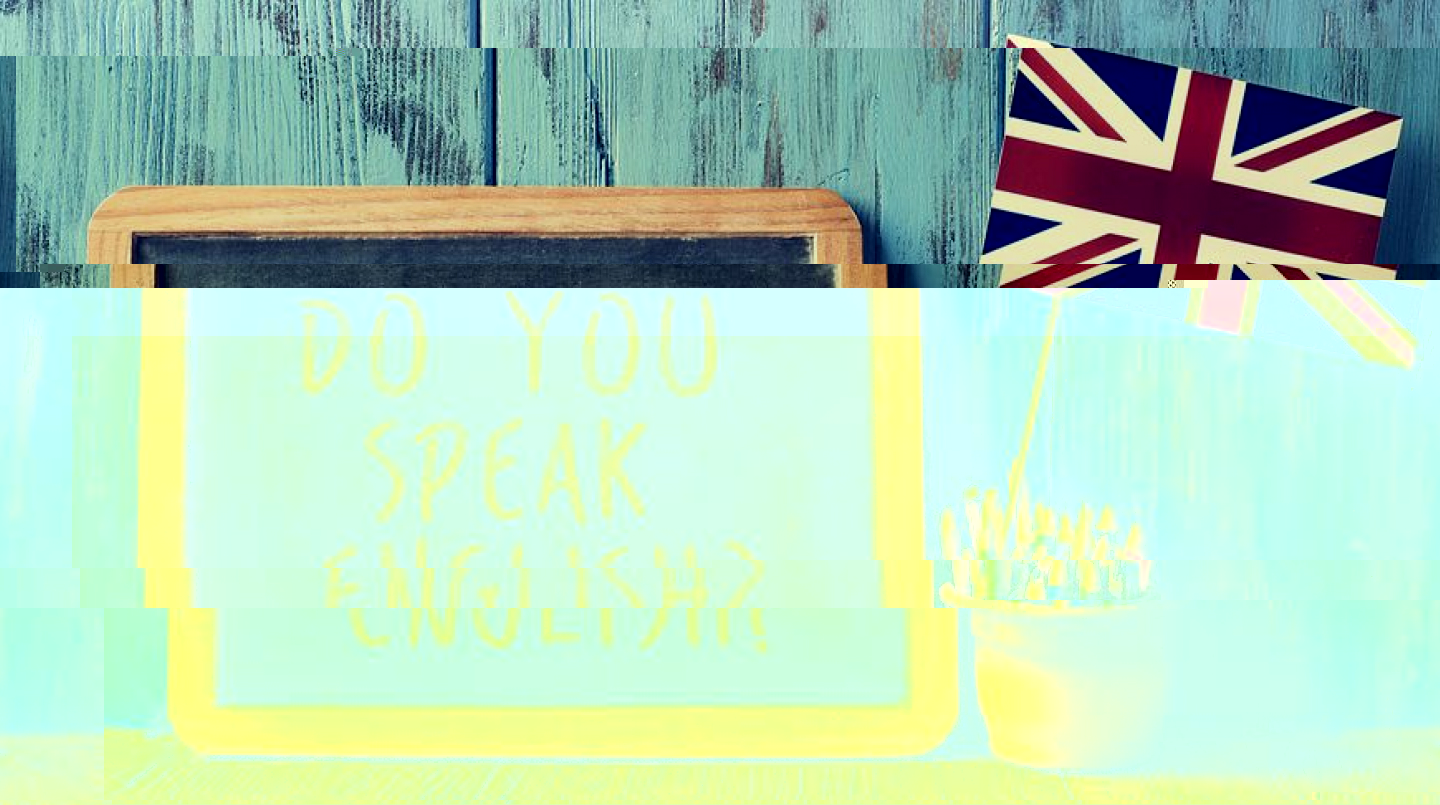 DO YOU
SPEAK
ENGLISH?